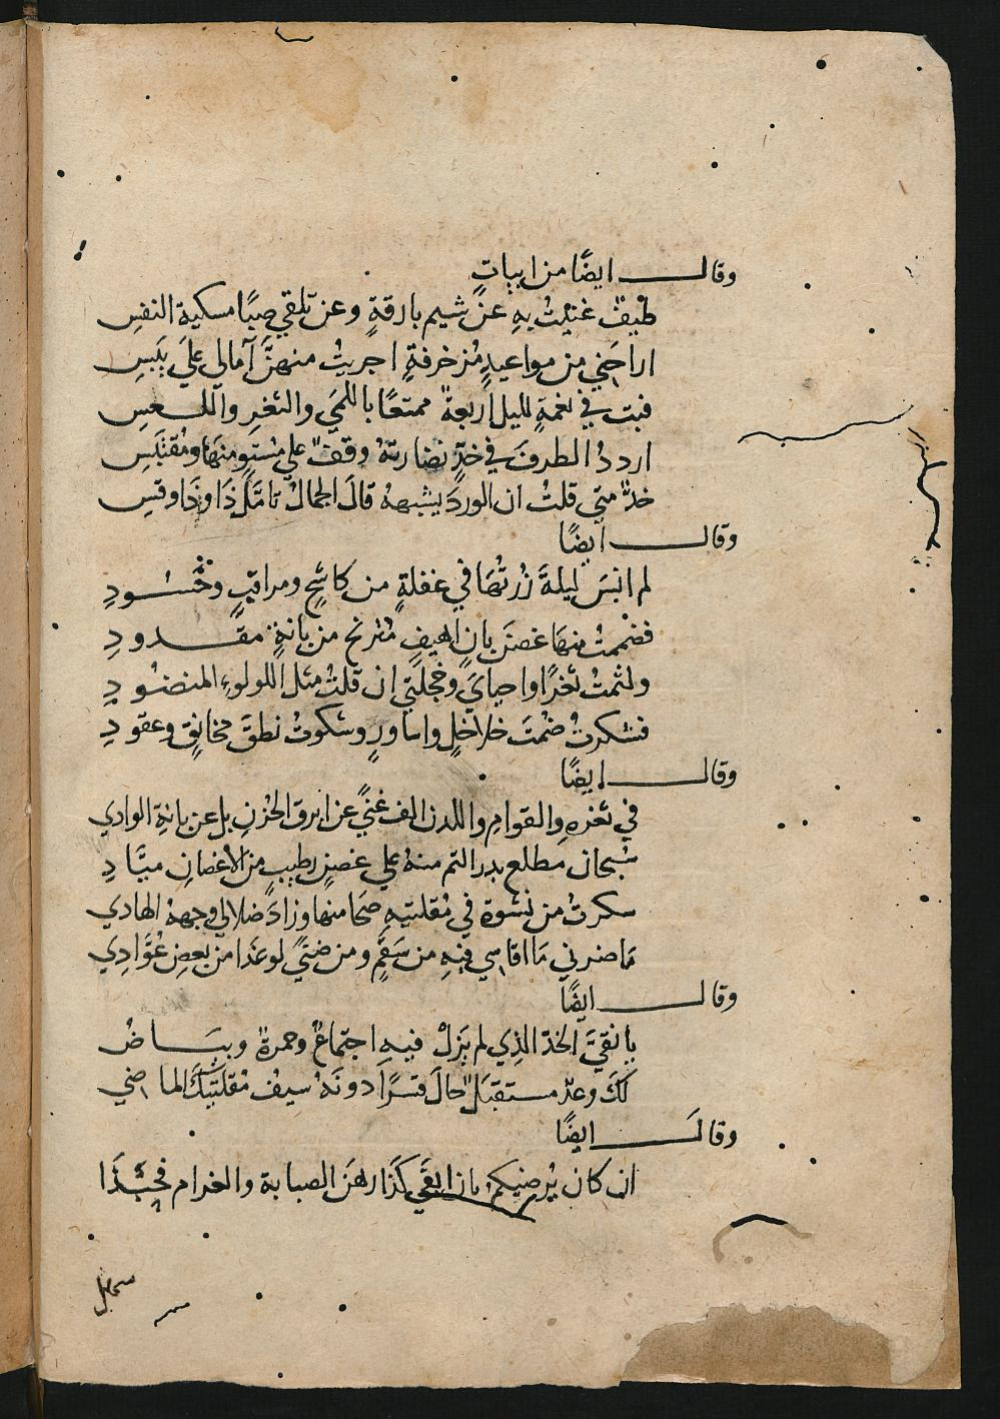 وقال ايضًا من ابياتٍ
طيفٌ غنيتُ بهِ عن شيم بارقةٍ وعن تلقي صبًا مسكية النفسِ
اراحَني من مواعيدٍ مُزخرفةٍ اجريتُ منهنَّ آمالي علي يَبَسِ
فبت في نعمةٍ لليل اربعة ممتعًا باللمَي والثغرِ واللعسِ
اردد الطرفَ في خدٍّ نضارتهُ وقفٌ علي مستوٍ منهَا ومُقتبَسِ
خدٌّ متي قلتُ ان الوردَ يشبههُ قالَ الجمالُ تامَّل ذَا وذَا وقسِ
وقال ايضًا
لم انسَ ليلةَ زرتُهَا في غفلةٍ من كاشحٍ ومراقبٍ وحَسُودِ
فضممتُ منهَا غصنَ بانٍ اهيفٍ مُترنح من بانةٍ مقدودِ
ولثمتُ ثغرًا واحيايَ وخجلتي إن قلتُ مثل اللولوءِ المنضُودِ
فشكرتُ ضمتَ خلاخلٍ واساورٍ وشكوتُ نطقَ مخانقٍ وعقودِ
وقال ايضًا
في ثغرهِ والقوامِ واللدن الف غنيً عن ابرق الحُزنِ بل عن بانةِ الوادي
سُبحان مطلع بدر التم منهُ علي غصنٍ رطيبٍ من الاغصانِ ميَّادِ
سكرتُ من نشوة في مُقلتيهِ صَحَا منها وزادَ ضلالي وجههُ الهادي
مَا ضرني مَا اقاسي فيهِ من سَقَمٍ ومن ضنيً لو غدَا من بعضِ عُوَّادي
وقال ايضًا
يا نقيَّ الخدّ الذِي لم يَزلْ فيهِ اجتماعٌ وحمرةٌ وبيَاضُ
لكَ وعدٌ مستقبَلٌ حالَ قسرًا دونَهُ سيفُ مُقلتيكَ الماضي
وقالَ ايضًا
ان كان يُرضيكم بان ابقَي كذَا رهنَ الصبابة والغرام فحبَّذَا